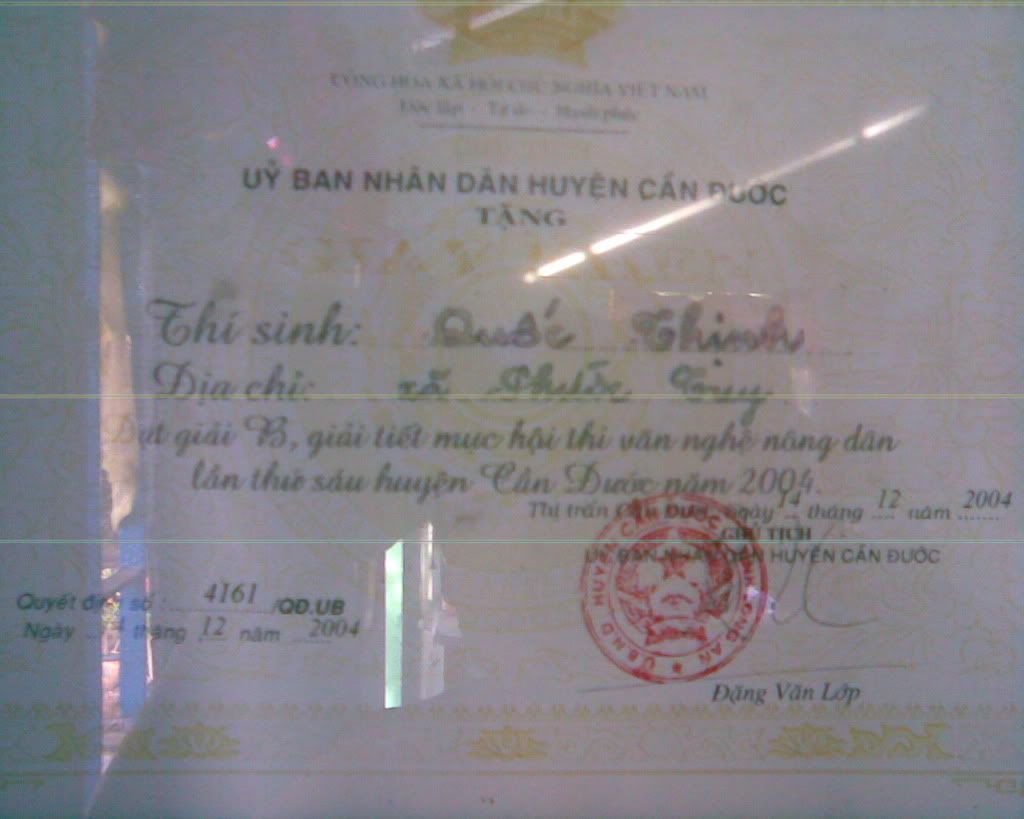 CỘNG HÒA XÃ HỘI CHỦ NGHĨA VIỆT NAM
Độc lập - Tự do - Hạnh phúc
UỶ BAN NHÂN DÂN HUYỆN CẦN ĐƯỚC
TẶNG
Thí sinh: Quốc Thịnh
Địa chỉ: xã Phước Tuy
Đạt giải B, giải tiết mục hội thi văn nghệ nông dân
lần thứ sáu huyện Cần Đước năm 2004.
Thị trấn Cần Đước, ngày 14 tháng 12 năm 2004
CHỦ TỊCH
UỶ BAN NHÂN DÂN HUYỆN CẦN ĐƯỚC
U.B.N.D HUYỆN CẦN ĐƯỚC TỈNH LONG AN
Quyết định số: 4161 /QĐ.UB
Ngày 14 tháng 12 năm 2004
Đặng Văn Lớp